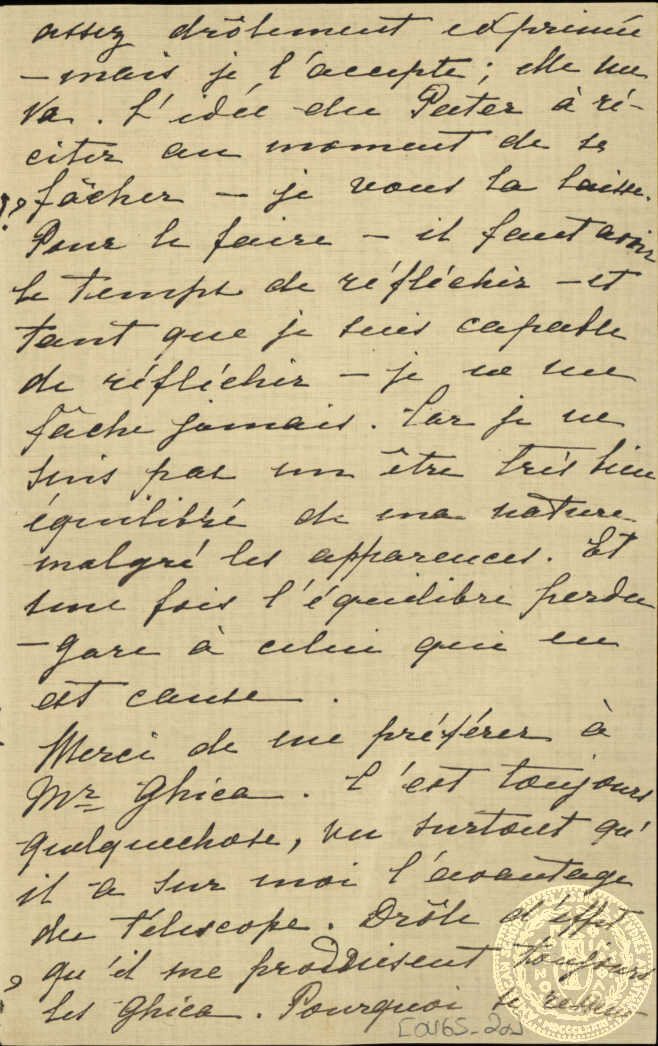 assez drôlement exprimée
– mais je l'accepte; elle me
va. L'idée du Pater à ré-
citer au moment de se
fâcher – je vous la laisse.
Pour le faire – il faut avoir
le temps de réfléchir – et
tant que je suis capable
de réfléchir – je ne me
fâche jamais. Car je ne
suis pas un être très bien
équilibré de ma nature
malgré les apparences. Et
une fois l'équilibre perdu
– gare à celui qui en
est cause.
Merci de me préférer à
Mr Ghica. C'est toujours
quelquechose, vu surtout qu'
il a sur moi l'avantage
du télescope. Drôle d'effet
qu'il me produisent toujours
les Ghica. Pourquoi se